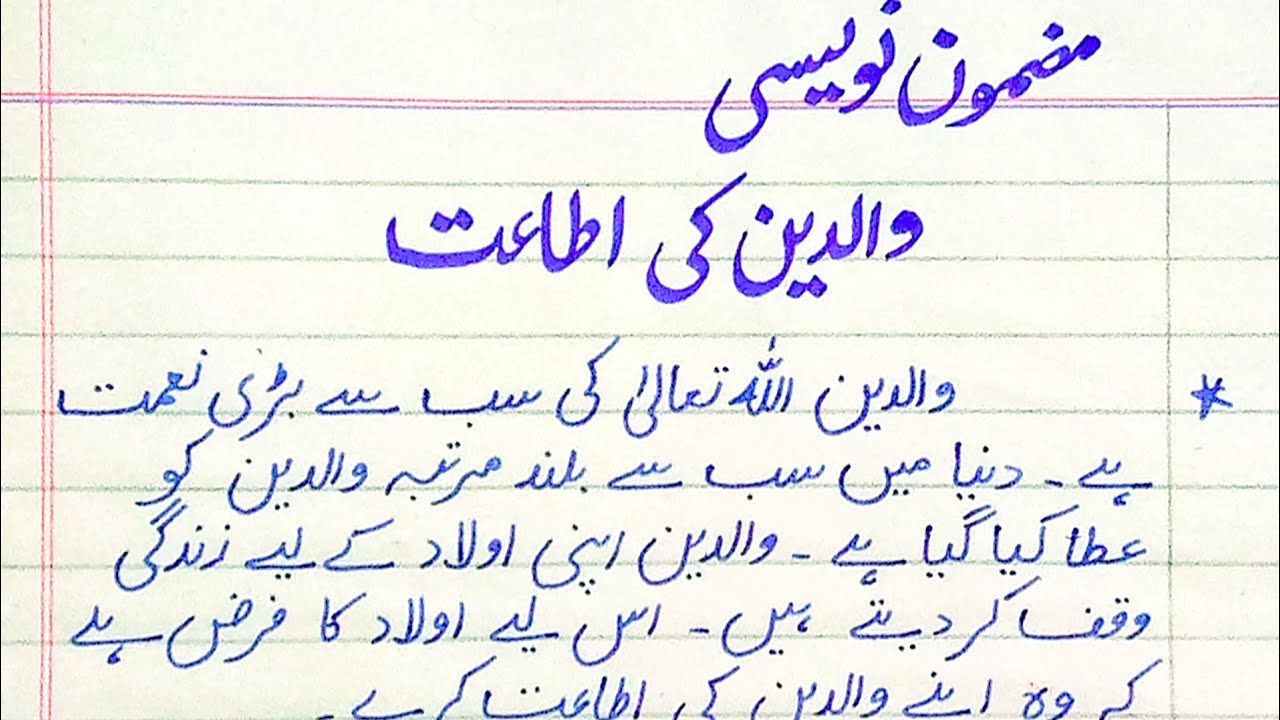 مضمون نویسی
والدین کی اطاعت
* والدین اللہ تعالیٰ کی سب سے بڑی نعمت
ہے۔ دنیا میں سب سے بلند مرتبہ والدین کو
عطا کیا گیا ہے۔ والدین اپنی اولاد کے لیے زندگی
وقف کر دیتے ہیں۔ اس لیے اولاد کا فرض ہے
کہ وہ اپنے والدین کی اطاعت کرے۔